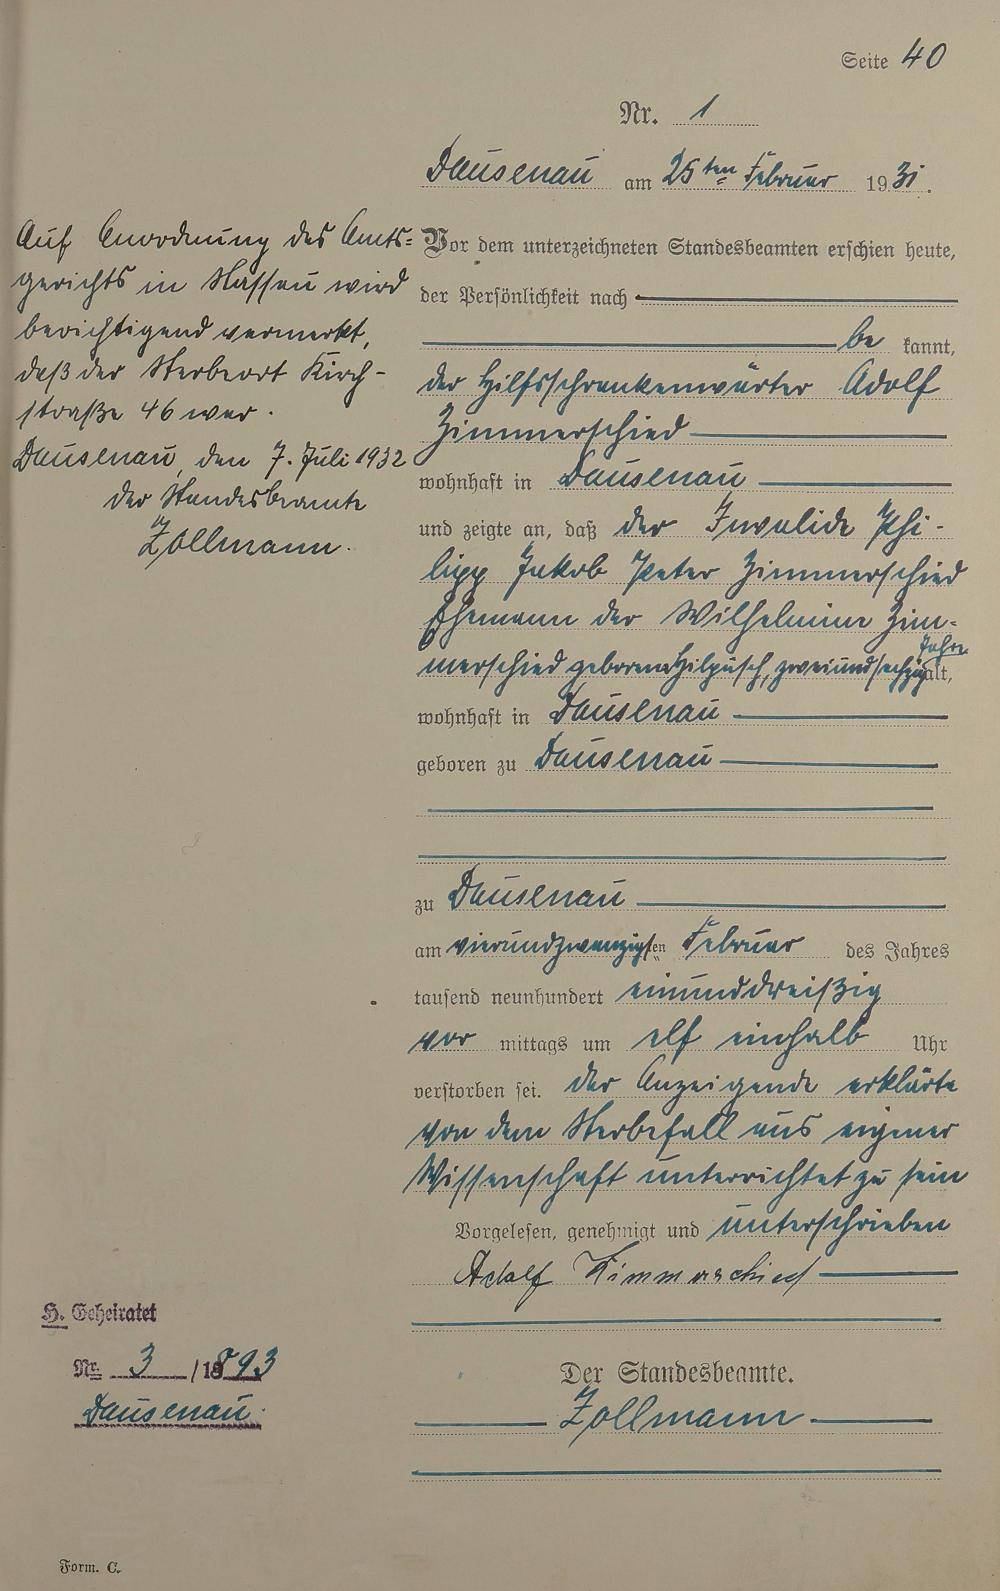 Seite 40
Nr. 1
Dausenau am 25ten Februar 1931.
Auf Anordnung des Amts=
gerichts in Nassau wird
berichtigend vermerkt,
daß der Sterbeort Kirch-
straße 46 war.
Dausenau, den 7. Juli 1932
Der Standesbeamte
Zollmann.
Vor dem unterzeichneten Standesbeamten erschien heute,
der Persönlichkeit nach
be kannt,
der Hilfsschrankenwärter Adolf
Zimmerschied
wohnhaft in Dausenau
und zeigte an, daß der Invalide Phi-
lipp Jakob Peter Zimmerschied
Ehemann der Wilhelmine Zim-
merschied geborene Hilpüsch, zweiundsechzig Jahre alt,
wohnhaft in Dausenau
geboren zu Dausenau
zu Dausenau
am vierundzwanzigsten Februar des Jahres
tausend neunhundert einunddreißig
vor mittags um elf einhalb Uhr
verstorben sei. Der Anzeigende erklärte
von dem Sterbefall aus eigener
Wissenschaft unterrichtet zu sein
Vorgelesen, genehmigt und unterschrieben
Adolf Zimmerschied
H. Geheiratet
Nr. 3 / 1893
Dausenau.
Der Standesbeamte.
Zollmann
Form. C.